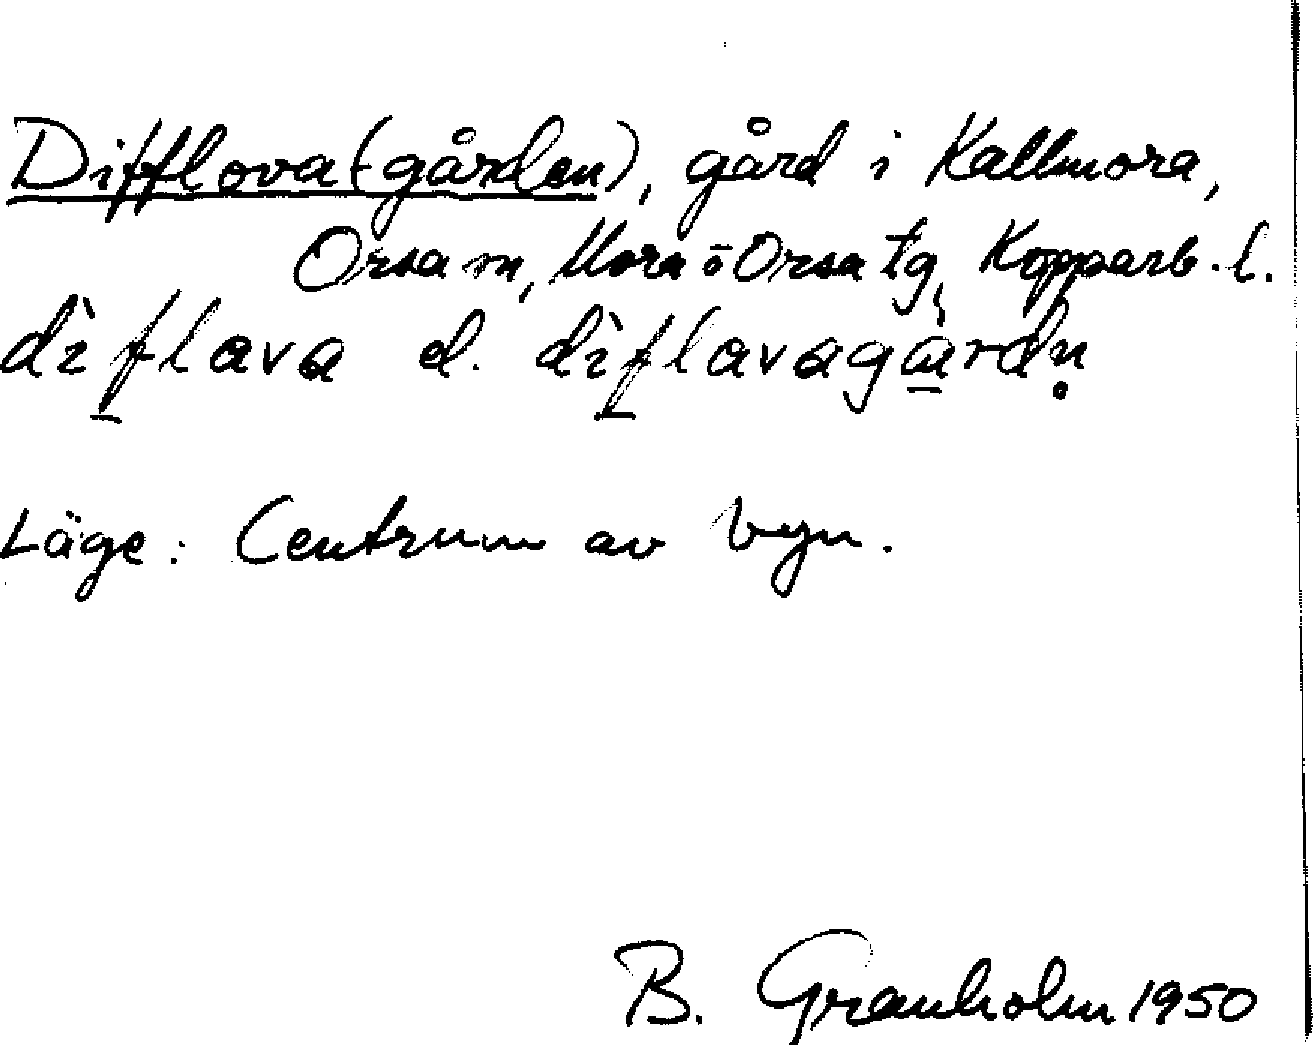 Difflova(-gården), gård i Kallmora,
Orsa sn, Mora o Orsa tg, Kopparb. l.
dìf̲lava el. dìf̲lavagà̲rdn̥
Läge: Centrum av byn.
B. Granholm 1950